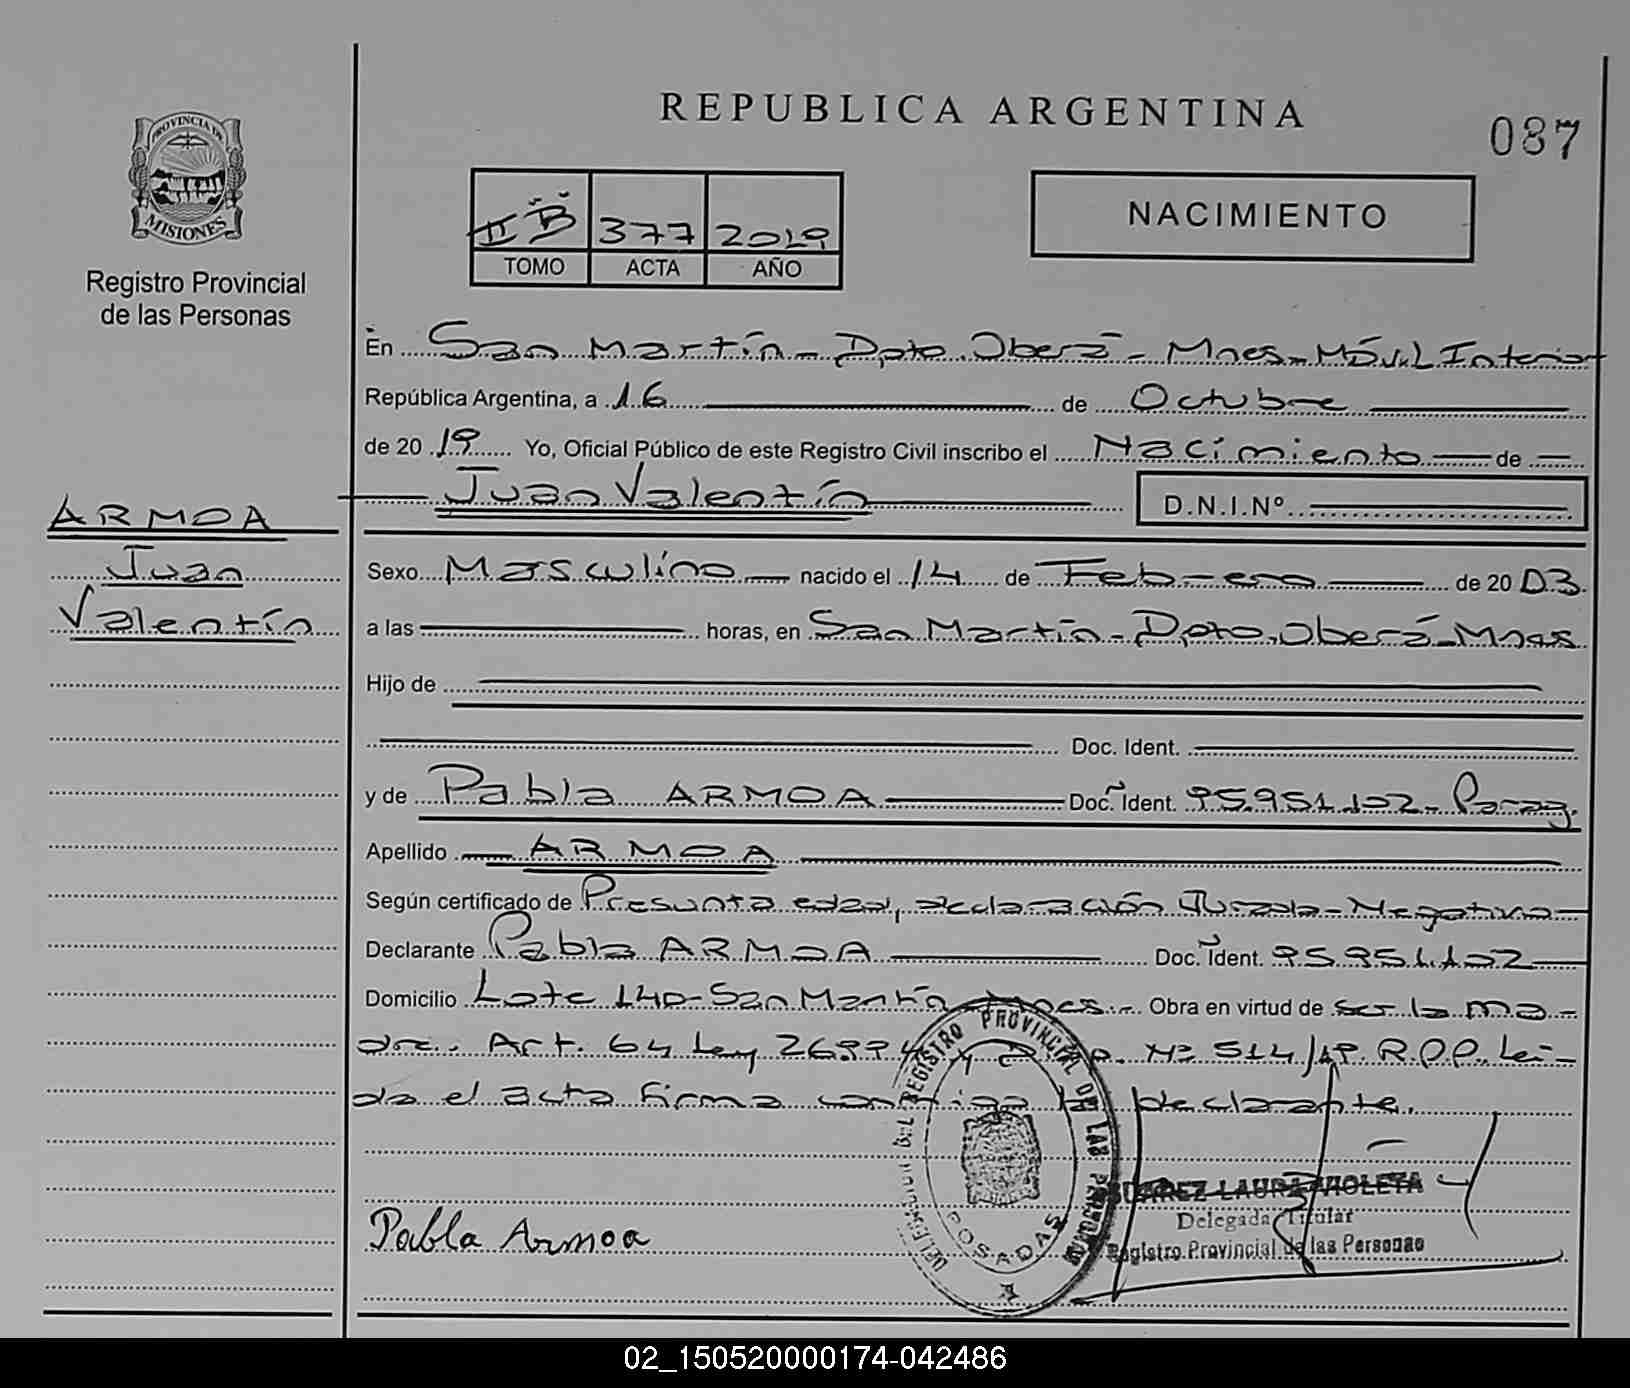 REPUBLICA ARGENTINA
087
PROVINCIA DE
MISIONES
Registro Provincial
de las Personas
II B 377 2019
TOMO ACTA AÑO
NACIMIENTO
En San Martín - Dpto. Oberá - Mnes - Móvil Interior
República Argentina, a 16 de Octubre
de 2019 Yo, Oficial Público de este Registro Civil inscribo el Nacimiento de
Juan Valentín D.N.I.Nº
ARMOA
Juan
Valentín
Sexo Masculino nacido el 14 de Febrero de 2003
a las horas, en San Martín - Dpto. Oberá - Mnes
Hijo de
Doc. Ident.
y de Pabla ARMOA Doc. Ident. 95.951.102 - Parag.
Apellido ARMOA
Según certificado de Presunta edad, declaración Jurada - Negativa
Declarante Pabla ARMOA Doc. Ident. 95.951.102
Domicilio Lote 140 - San Martín - Mnes. - Obra en virtud de ser la ma-
dre. Art. 64 Ley 26994 y Nº 514/19 R.P.P. Leí-
da el acta firma conmigo la declarante.
DELEGACION DEL REGISTRO PROVINCIAL DE LAS PERSONAS
POSADAS
SUAREZ LAURA VIOLETA
Delegada Titular
Registro Provincial de las Personas
Pabla Armoa
02_150520000174-042486